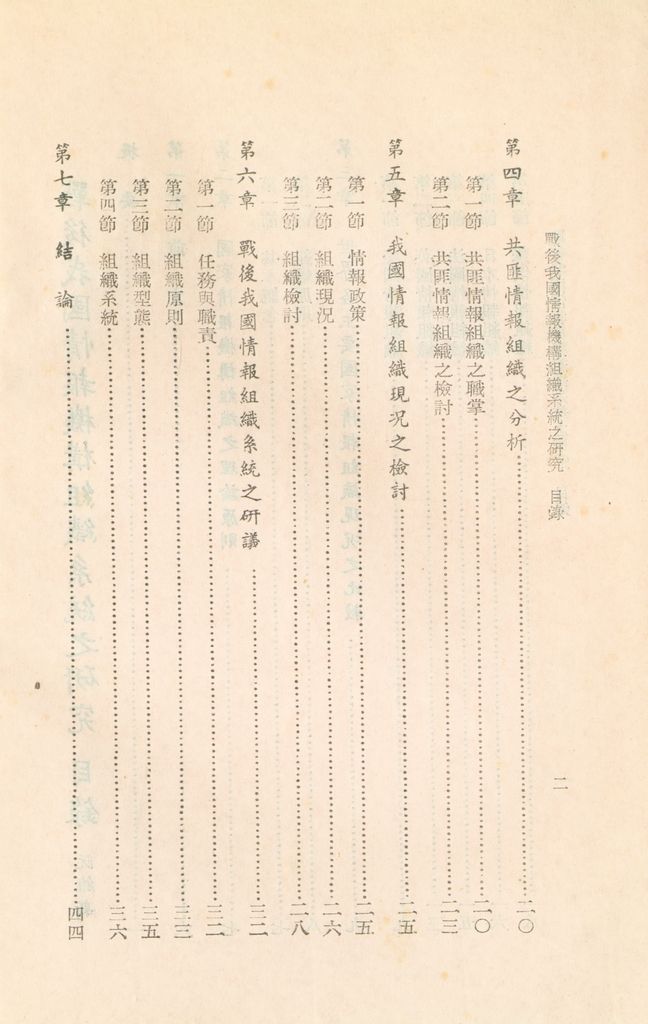 戰後我國情報機構組織系統之研究 目錄
二
第四章 共匪情報組織之分析……二〇
第一節 共匪情報組織之職掌……二〇
第二節 共匪情報組織之檢討……二三
第五章 我國情報組織現況之檢討……二五
第一節 情報政策……二五
第二節 組織現況……二六
第三節 組織檢討……二八
第六章 戰後我國情報組織系統之研議……三二
第一節 任務與職責……三二
第二節 組織原則……三三
第三節 組織型態……三五
第四節 組織系統……三六
第七章 結論……四四